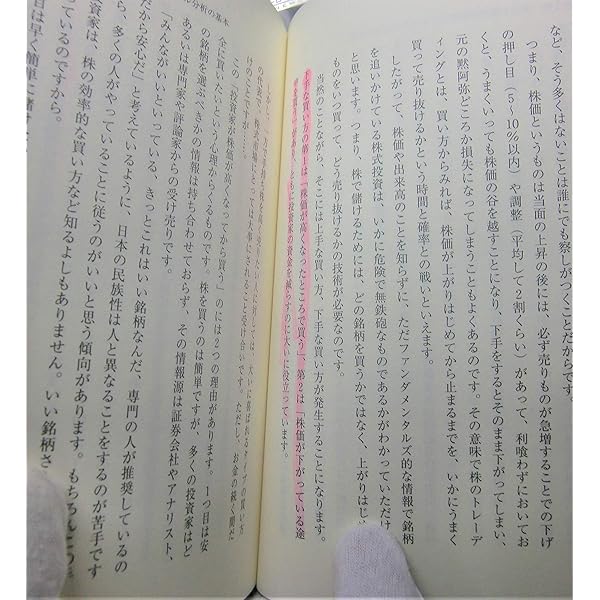 など、そう多くはないことは誰にでも察しがつくことだからです。
つまり、株価というものは当面の上昇の後には、必ず売りものが急増することでの下げ
の押し目（5、10％以内）や調整（平均して2割くらい）があって、利喰わずにおいてお
くと、うまくいっても株価の谷を越すことになり、下手をするとそのまま下がってしまい、
元の黙阿弥どころか損失になってしまうこともよくあるのです。その意味で株のトレーデ
ィングとは、買い方からみれば、株価が上がりはじめてから止まるまでを、いかにうまく
買って売り抜けるかという時間と確率との戦いといえます。
したがって、株価や出来高のことを知らずに、ただファンダメンタルズ的な情報で銘柄
を追いかけている株式投資は、いかに危険で無鉄砲なものであるかがわかっていただけ
と思います。つまり、株で儲けるためには、どの銘柄を買うかではなく、上がりはじ
ものをいつ買って、どう売り抜けるかの技術が必要なのです。
当然のことながら、そこには上手な買い方、下手な買い方が発生することになります。
下手な買い方の第1は「株価が高くなったところで買う」、第2は「株価が下がっている途
中で買う」であり、ともに投資家の資金を減らすのに大いに役立っています。
分析の基本
この「投資家が株価が高くなってから買う」のには2つの理由があります。1つ目は安
全に買いたいという心理からくるものです。株を買うのは簡単ですが、多くの投資家はど
の銘柄を選ぶべきかの情報は持ち合わせておらず、その情報源は証券会社やアナリスト、
あるいは専門家や評論家からの受け売りです。
「みんながいいといっている、きっとこれはいい銘柄なんだ、専門の人が推奨しているの
だから安心だ」と考えているように、日本の民族性は人と異なることをするのが苦手です
ら、多くの人がやっていることに従うのがいいと思う傾向があります。もちろん
資家は、株の効率的な買い方など知るよしもありません。いい銘柄さ
っているのですから。